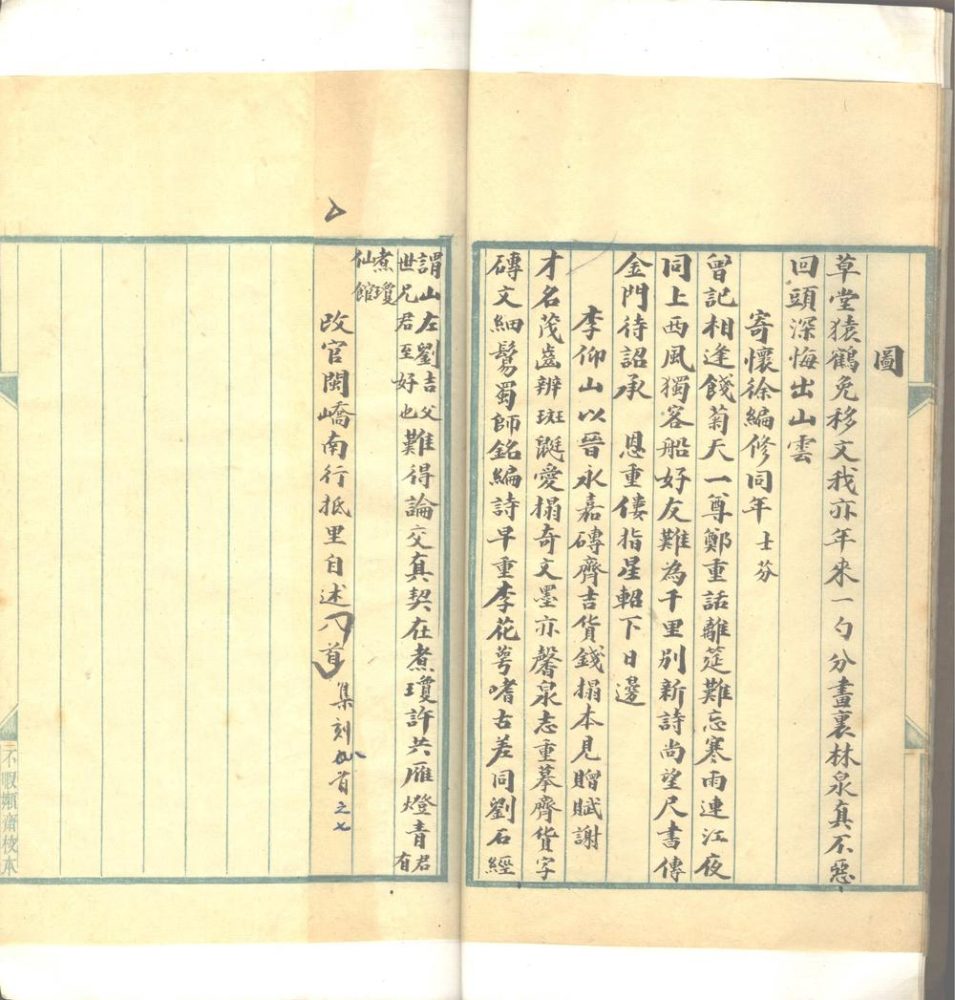 圖
草堂猿鶴免移文我亦年來一勺分畫裏林泉真不惡
回頭深悔出山雲
寄懷徐編修同年士芬
曾記相逢餞菊天一尊鄭重話離筵難忘寒雨連江夜
同上西風獨客船好友難為千里別新詩尚望尺書傳
金門待詔承 恩重僂指星軺下日邊
李仰山以晉永嘉磚齊吉貨錢搨本見贈賦謝
才名茂齒辨斑鼮愛搨奇文墨亦馨泉志重摹齊貨字
磚文細鬄蜀師銘編詩早重李花萼嗜古差同劉石經
謂山左劉吉父
世兄君至好也
難得論交真契在煮瓊許共雁燈青
君有
煮瓊
仙館
改官閩嶠南行抵里自述八首
集刻 首之七
不暇嬾齋校本